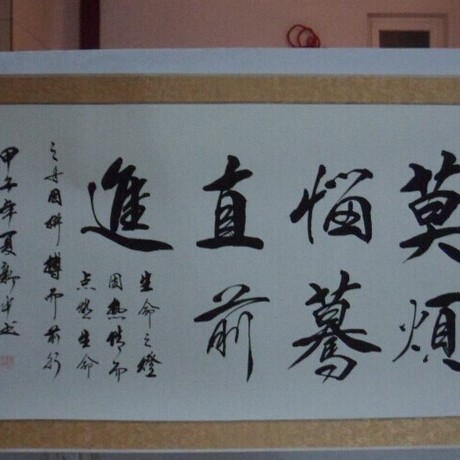 莫煩
惱驀
直前
進
生命之燈
因热情而
点燃生命
之舟因拼搏而前行
甲午年夏新平书